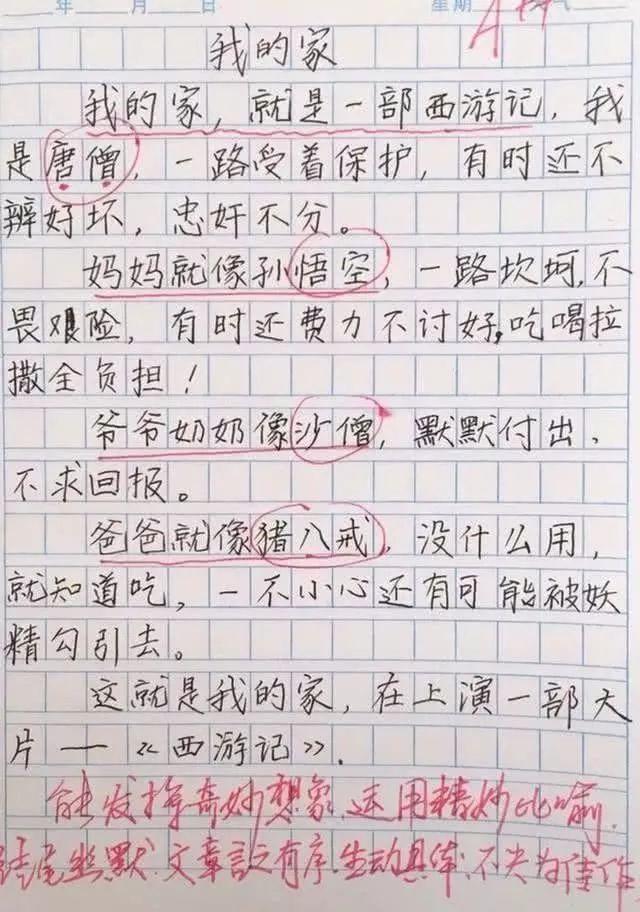 年 月 日 星期 气
我的家
我的家，就是一部西游记，我
是唐僧，一路受着保护，有时还不
辨好坏，忠奸不分。
妈妈就像孙悟空，一路坎坷，不
畏艰险，有时还费力不讨好，吃喝拉
撒全负担！
爷爷奶奶像沙僧，默默付出、
不求回报。
爸爸就像猪八戒，没什么用，
就知道吃，一不小心还有可能被妖
精勾引去。
这就是我的家，在上演一部大
片——《西游记》．
能发挥奇妙想象，运用精妙比喻，
结尾幽默．文章言之有序，生动具体，不失为佳作